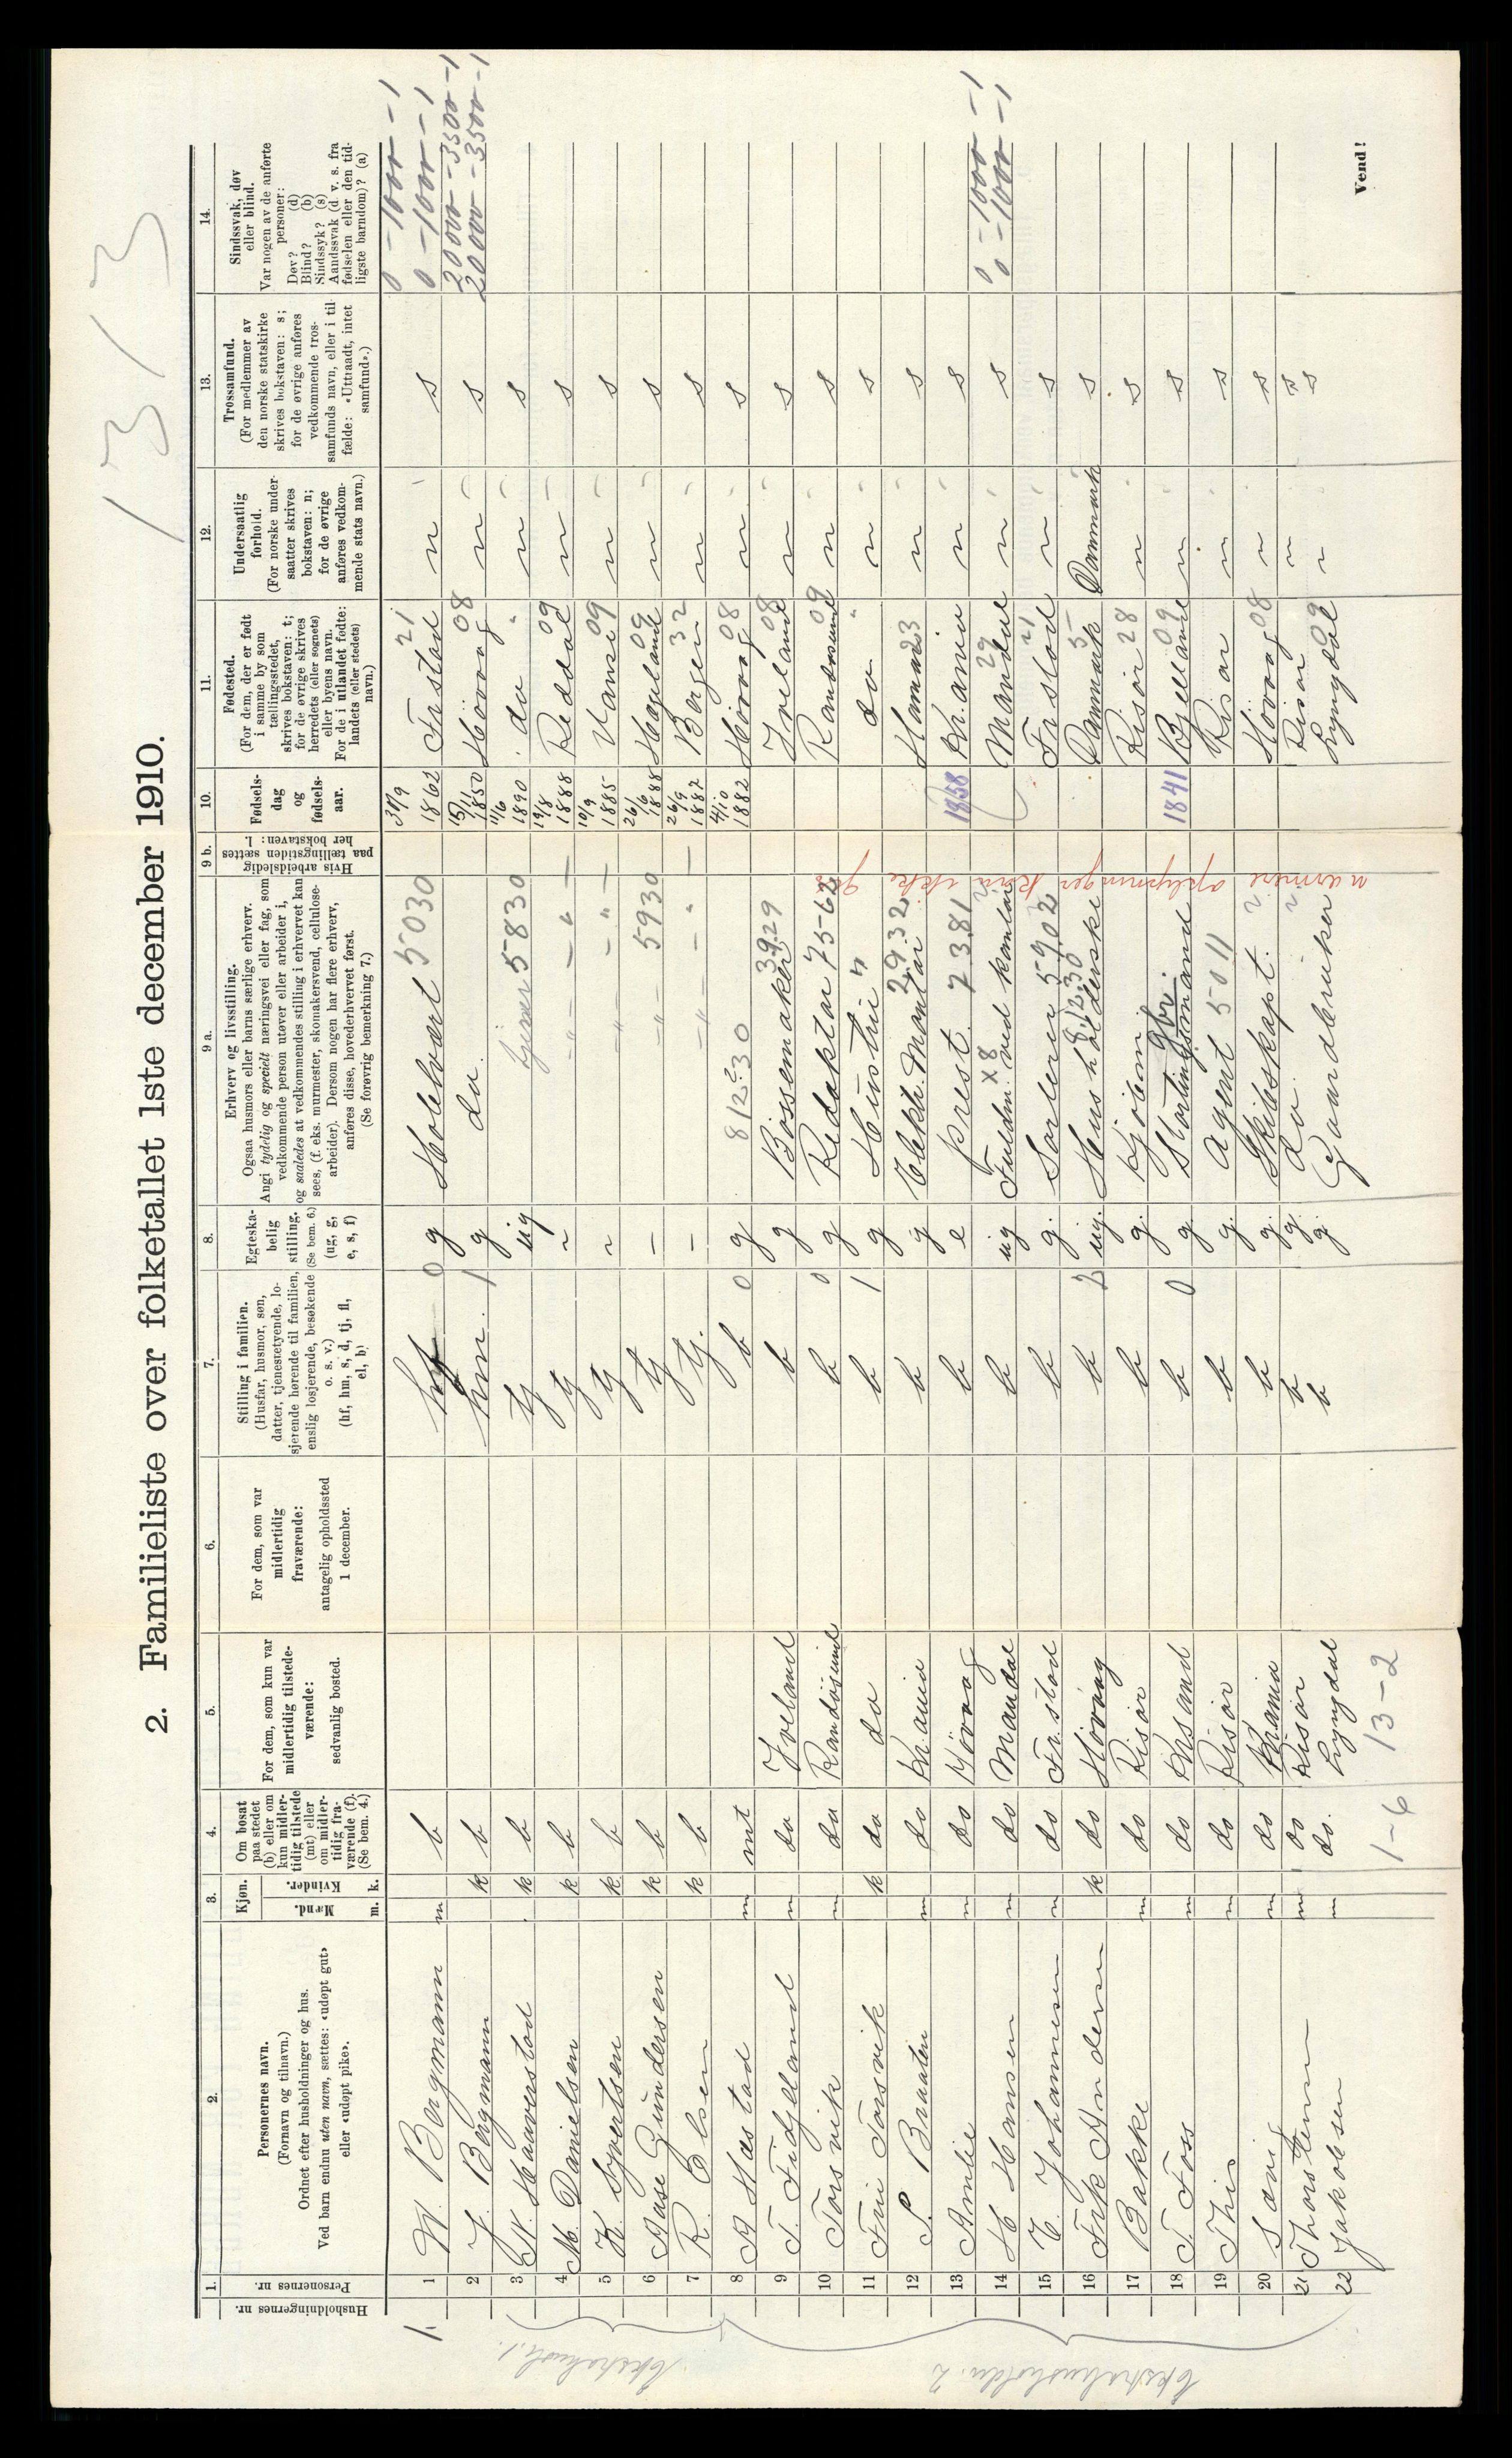 1313
2. Familieliste over folketallet 1ste december 1910.
1.
Husholdningernes nr.
Personernes nr.
2.
Personernes navn.
(Fornavn og tilnavn.)
Ordnet efter husholdninger og hus.
Ved barn endnu uten navn, sættes: «udøpt gut»
eller «udøpt pike».
3.
Kjøn.
Mænd.
Kvinder.
m. k.
4.
Om bosat
paa stedet
(b) eller om
kun midler-
tidig tilstede
(mt) eller
om midler-
tidig fra-
værende (f).
(Se bem. 4.)
5.
For dem, som kun var
midlertidig tilstede-
værende:
sedvanlig bosted.
6.
For dem, som var
midlertidig
fraværende:
antagelig opholdssted
1 december.
7.
Stilling i familien.
(Husfar, husmor, søn,
datter, tjenestetyende, lo-
sjerende hørende til familien,
enslig losjerende, besøkende
o. s. v.)
(hf, hm, s, d, tj, fl,
el, b)
8.
Egteska-
belig
stilling.
(Se bem. 6.)
(ug, g,
e, s, f)
9 a.
Erhverv og livsstilling.
Ogsaa husmors eller barns særlige erhverv.
Angi tydelig og specielt næringsvei eller fag, som
vedkommende person utøver eller arbeider i,
og saaledes at vedkommendes stilling i erhvervet kan
sees, (f. eks. murmester, skomakersvend, cellulose-
arbeider). Dersom nogen har flere erhverv,
anføres disse, hovederhvervet først.
(Se forøvrig bemerkning 7.)
9 b.
Hvis arbeidsledig
paa tællingstiden sættes
her bokstaven: l.
10.
Fødsels-
dag
og
fødsels-
aar.
11.
Fødested.
(For dem, der er født
i samme by som
tællingsstedet,
skrives bokstaven: t;
for de øvrige skrives
herredets (eller sognets)
eller byens navn.
For de i utlandet fødte:
landets (eller stedets)
navn.)
12.
Undersaatlig
forhold.
(For norske under-
saatter skrives
bokstaven: n;
for de øvrige
anføres vedkom-
mende stats navn.)
13.
Trossamfund.
(For medlemmer av
den norske statskirke
skrives bokstaven: s;
for de øvrige anføres
vedkommende tros-
samfunds navn, eller i til-
fælde: «Uttraadt, intet
samfund».)
14.
Sindssvak, døv
eller blind.
Var nogen av de anførte
personer:
Døv? (d)
Blind? (b)
Sindssyk? (s)
Aandssvak (d. v. s. fra
fødselen eller den tid-
ligste barndom)? (a)
1. 1 W. Bergmann m b hf 0 g Hotelvært 5030 30/9 1862 Frstad 21 n s 0 - 1000 - 1
2 J. Bergmann k b hm 1 g do. 15/11 1850 Hövaag 08 n s 20000 - 3500 - 1
3 N. Haaverstad k b tj ug tjener 5830 11/6 1890 do " n s
4 M. Danielsen k b tj " - " - 19/8 1888 Reddal 09 n s
5 K. Syvertsen k b tj " - " - 10/9 1885 Vanse 09 n s
6 Aase Gundersen k b tj - " - 5930 26/6 1888 Hægeland 09 n s
7 R. Olsen k b tj. - " - 26/9 1887 Bergen 32 n s
8 A Hæstad m mt b 0 g 812?30 4/10 1882 Hövaag 08 n s
9 T. Fidjeland m do Iveland b g Bössemaker 3929 Iveland 08 n s
10 Torsvik m do Randösund b 0 g Redaktør 75-62 Randøsund 09 n s
11 Fru Torsvik k do do b 1 g Hustru " do " n s
12 S. Braaten m do Krania b g Elekt. Montør 2932 Hamar 23 n s
13 Amlie m do Hövaag b e prest 7381 1858 Kr.ania n s
14 H Hansen m do Mandal b ug Fuldm. ved kontor x8 Mandal 29 n s 0 - 1000 - 1
15 C. Johannesen m do Fr.stad b g. Sorterer 5902 Frstad 21 n s
16 Frk Andersen k do Hövaag b 2 ug. Husholderske 81230 Danmark 5 Danmark s
17 Bakke m do Risör b g. Kjöbm. Risör 28 n s
18 T. Foss m do Krsand b 0 g. Stortingsmand gbr. 1841 Bjelland 09 n s
19 This m do Risör b g. Agent 5011 Risör n s
20 Sævig m do Krania b g. Skibskapt. Hövaag 08 n s
21 Thorstensen m do Risör b g. do. Risör n s
22 Jakobsen m do. Lyngdal b g. Gaardbruker Lyngdal 09 n s
nærmere oplysninger kan ikke gis
Ekstrahush. 1.
Ekstrahusholdn. 2
1-6 13-2
Vend!